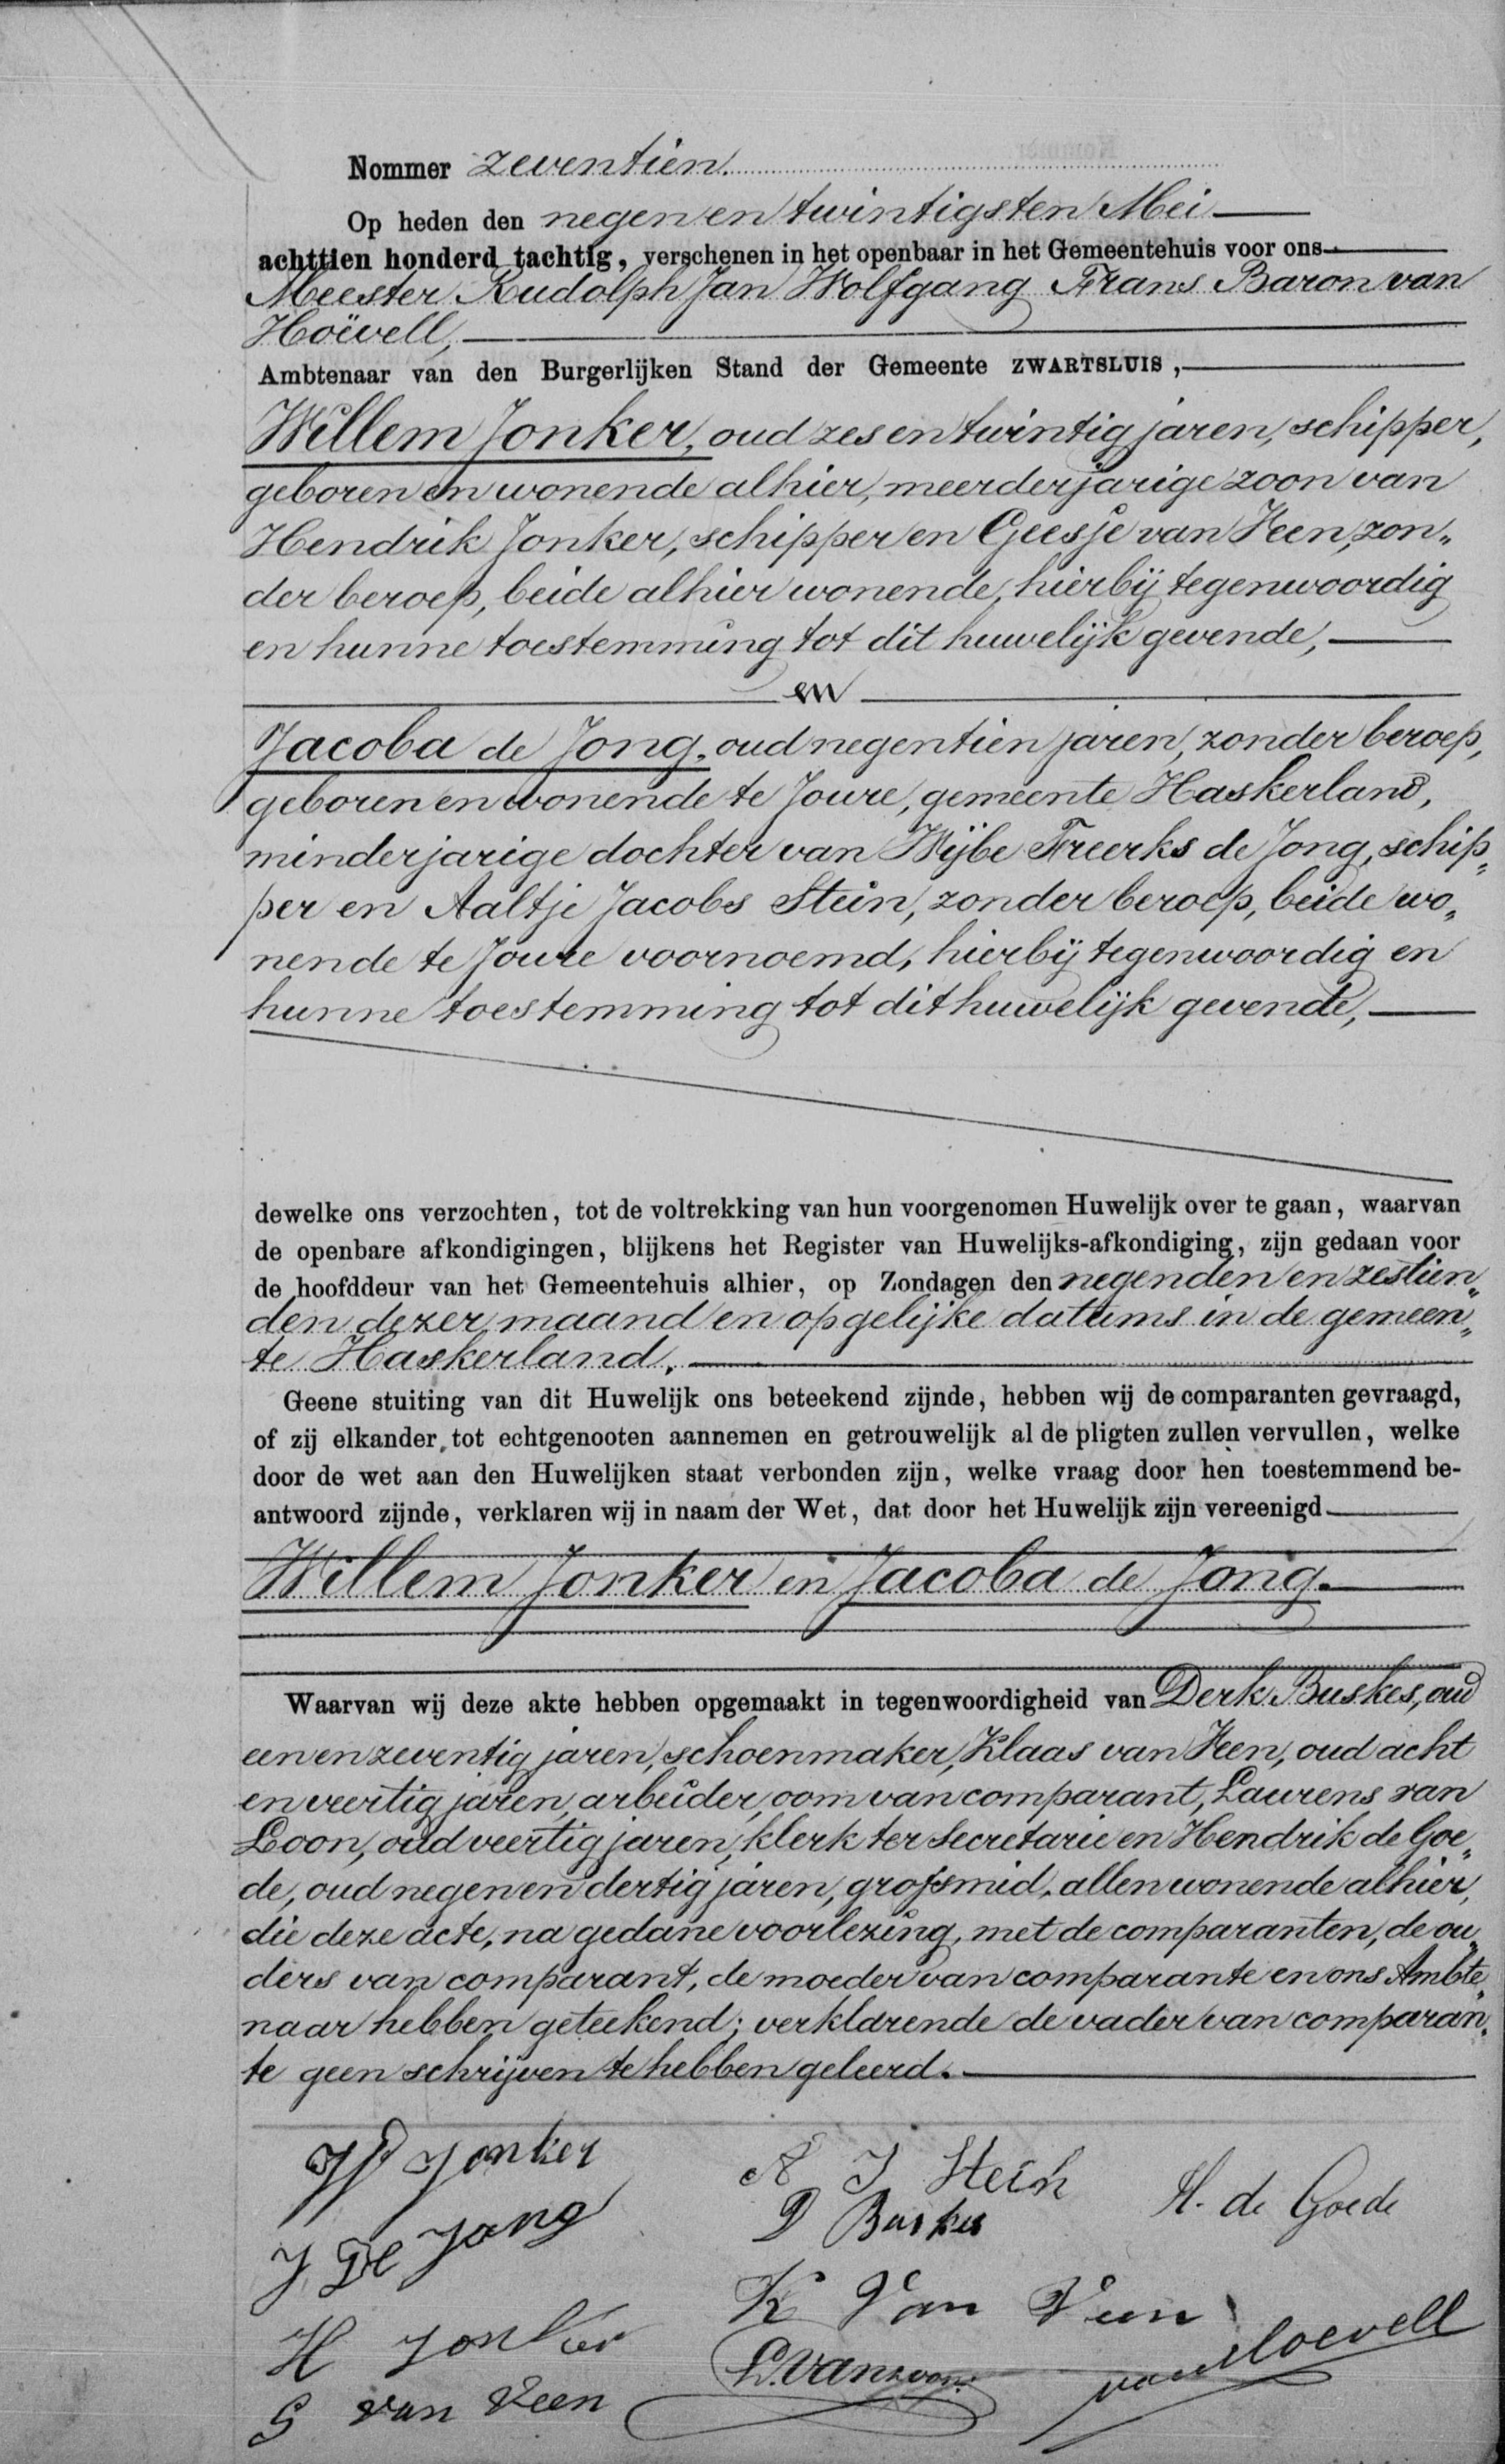 Nommer zeventien.
Op heden den negen en twintigsten Mei
achttien honderd tachtig, verschenen in het openbaar in het Gemeentehuis voor ons
Meester Rudolph Jan Wolfgang Frans Baron van
Hoëvell,
Ambtenaar van den Burgerlijken Stand der Gemeente ZWARTSLUIS,
Willem Jonker, oud zes en twintig jaren, schipper,
geboren en wonende alhier, meerderjarige zoon van
Hendrik Jonker, schipper en Geesje van Veen, zon„
der beroep, beide alhier wonende, hierbij tegenwoordig
en hunne toestemming tot dit huwelijk gevende,
en
Jacoba de Jong, oud negentien jaren, zonder beroep,
geboren en wonende te Joure, gemeente Haskerland,
minderjarige dochter van Wijbe Freerks de Jong, schip„
per en Aaltje Jacobs Stein, zonder beroep, beide wo„
nende te Joure voornoemd, hierbij tegenwoordig en
hunne toestemming tot dit huwelijk gevende,
dewelke ons verzochten, tot de voltrekking van hun voorgenomen Huwelijk over te gaan, waarvan
de openbare afkondigingen, blijkens het Register van Huwelijks-afkondiging, zijn gedaan voor
de hoofddeur van het Gemeentehuis alhier, op Zondagen den negenden en zestien„
den dezer maand en op gelijke datums in de gemeen„
te Haskerland.
Geene stuiting van dit Huwelijk ons beteekend zijnde, hebben wij de comparanten gevraagd,
of zij elkander tot echtgenooten aannemen en getrouwelijk al de pligten zullen vervullen, welke
door de wet aan den Huwelijken staat verbonden zijn, welke vraag door hen toestemmend be-
antwoord zijnde, verklaren wij in naam der Wet, dat door het Huwelijk zijn vereenigd
Willem Jonker en Jacoba de Jong.
Waarvan wij deze akte hebben opgemaakt in tegenwoordigheid van Derk Buskes, oud
een en zeventig jaren, schoenmaker, Klaas van Veen, oud acht
en veertig jaren, arbeider, oom van comparant, Laurens van
Loon, oud veertig jaren, klerk ter Secretarie en Hendrik de Goe„
de, oud negen en dertig jaren, grofsmid, allen wonende alhier,
die deze acte, na gedane voorlezing, met de comparanten, de ou„
ders van comparant, de moeder van comparante en ons Ambte„
naar hebben geteekend; verklarende de vader van comparan„
te geen schrijven te hebben geleerd.
W Jonker
A J Stein
H. de Goede
D Buskes
J De Jong
K Van Veen
H Jonker
L. van Loon.
van Hoëvell
G van Veen